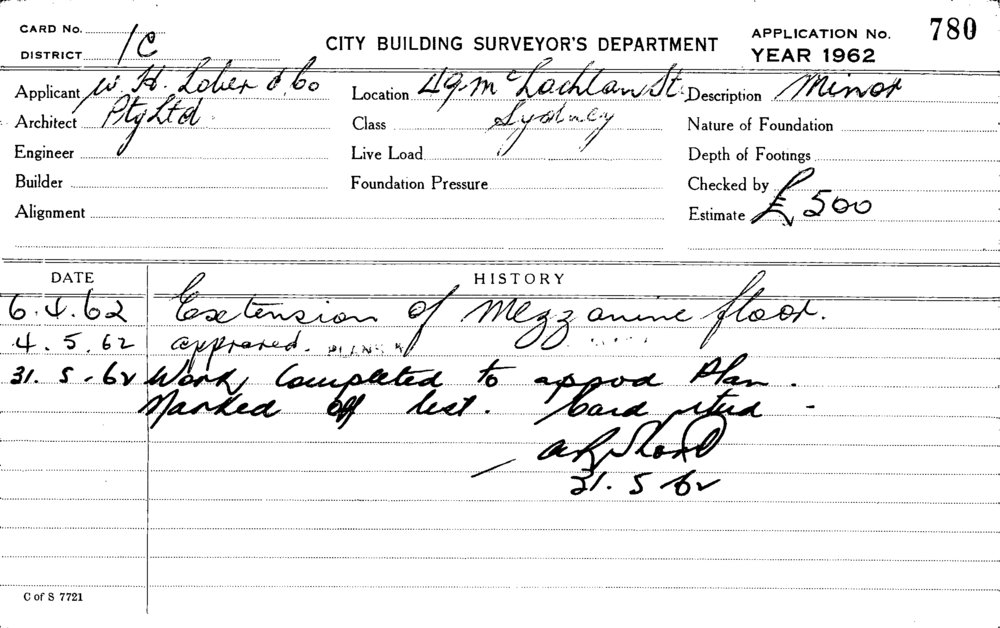 CARD No.
DISTRICT 1C
CITY BUILDING SURVEYOR'S DEPARTMENT
APPLICATION No. 780
YEAR 1962
Applicant W. H. Lober & Co
Location 49 McLachlan St.
Description Minor
Architect Pty Ltd.
Class Sydney
Nature of Foundation
Engineer
Live Load
Depth of Footings
Builder
Foundation Pressure
Checked by
Alignment
Estimate £500
DATE HISTORY
6.4.62 Extension of Mezzanine floor.
4.5.62 approved. PLANS
31.5.62 Work Completed to appvd Plan.
Marked off list. Card rtud -
31.5.62
C of S 7721